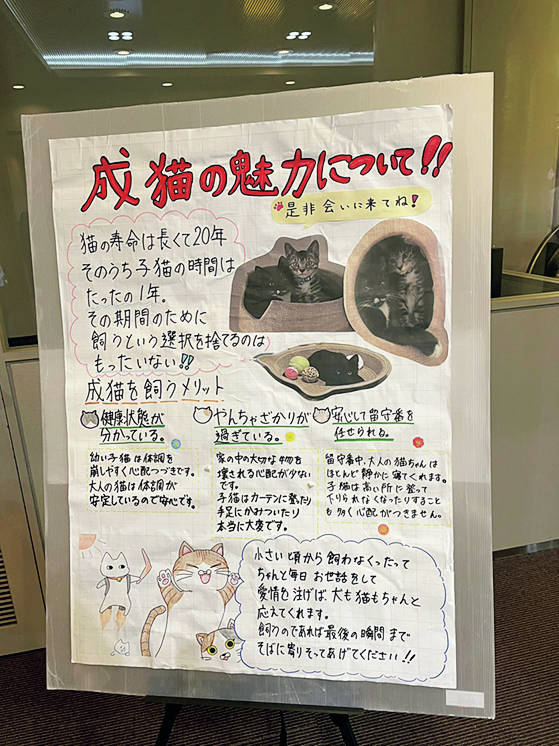 成猫の魅力について!!
是非会いに来てね!
猫の寿命は長くて20年
そのうち子猫の時間は
たったの1年。
その期間のために
飼うという選択を捨てるのは
もったいない!!
成猫を飼うメリット
健康状態が
分かっている。
幼い子猫は体調を
崩しやすく心配つづきです。
大人の猫は体調が
安定しているので安心です。
やんちゃざかりが
過ぎている。
家の中の大切な物を
壊される心配が少ない
です。
子猫はカーテンに登ったり
手足にかみついたり
本当に大変です。
安心して留守番を
任せられる。
留守番中、大人の猫ちゃんは
ほとんど静かに寝てくれます。
子猫は高い所に登って
下りられなくなったりすること
も多く心配がつきません。
小さい頃から飼わなくったって
ちゃんと毎日お世話をして
愛情を注げば、犬も猫もちゃんと
応えてくれます。
飼うのであれば最後の瞬間まで
そばに寄りそってあげてください!!